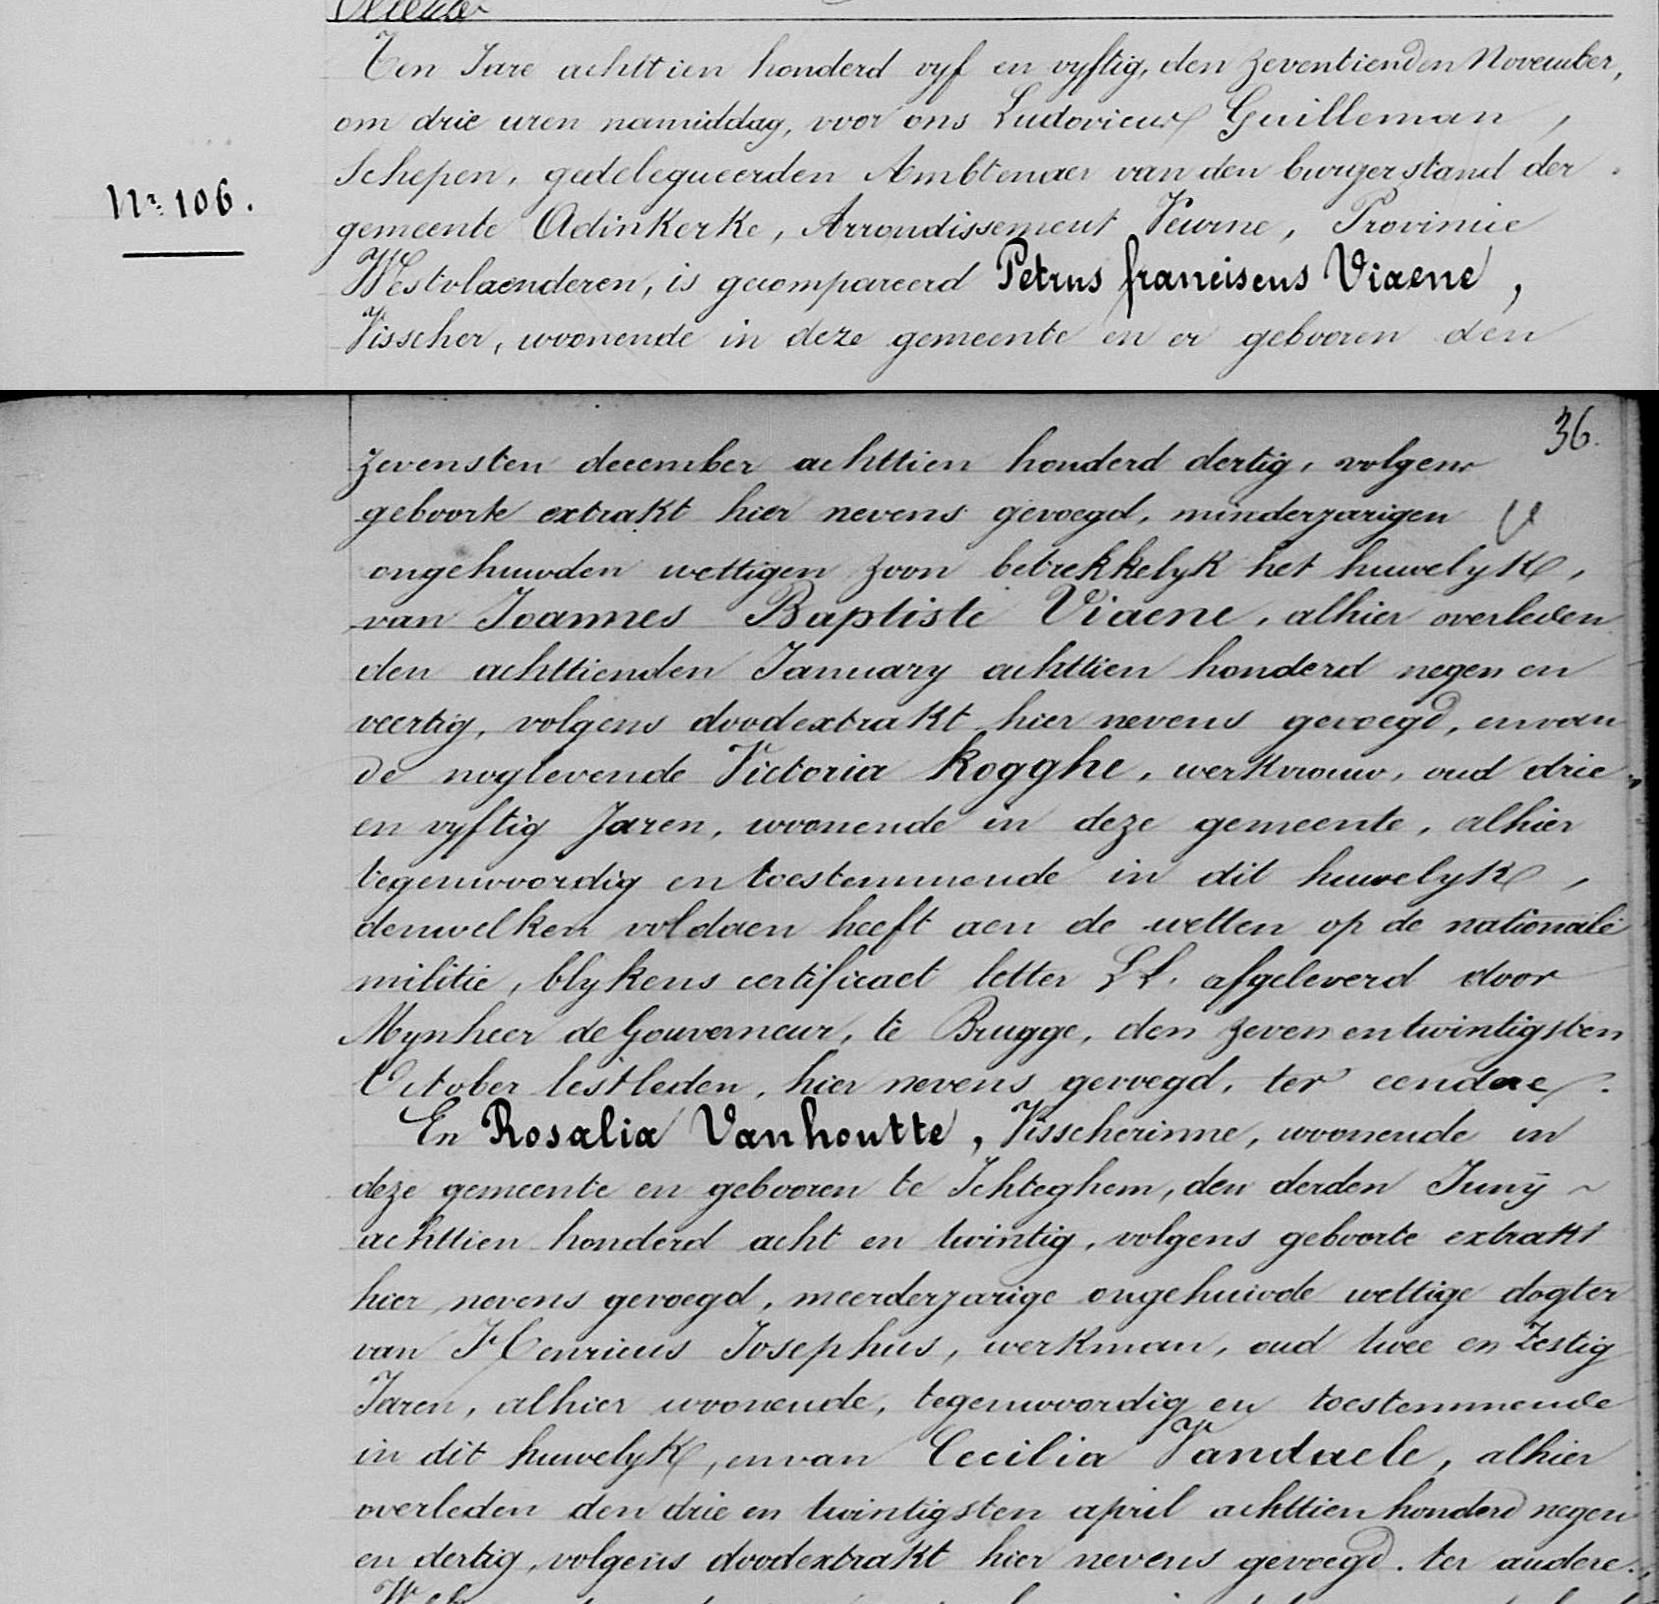 Ten Jare achttien honderd vyf en vyftig, den zeventienden November,
om drie uren namiddag, voor ons Ludovicus Guilleman,
Schepen, gedelegueerden Ambtenaer van den burgerstand der
Nr. 106.
gemeente Adinkerke, Arrondissement Veurne, Provincie
Westvlaenderen, is gecompareerd Petrus franciscus Viaene,
Visscher, woonende in deze gemeente en er gebooren den
36.
zevensten december achttien honderd dertig, volgens
geboorte extrakt hier nevens gevoegd, minderjarigen
ongehuwden wettigen zoon betrekkelyk het huwelyk,
van Joannes Baptiste Viaene, alhier overleden
den achttienden January achttien honderd negen en
veertig, volgens doodextrakt hier nevens gevoegd, en van
de noglevende Victoria Kogghe, werkvrouw, oud drie
en vyftig Jaren, woonende in deze gemeente, alhier
tegenwoordig en toestemmende in dit huwelyk,
denwelken voldaen heeft aen de wetten op de nationale
militie, blykens certificaet letter LL. afgeleverd door
Mynheer de Gouverneur, te Brugge, den zeven en twintigsten
October lestleden, hier nevens gevoegd, ter eendere.
En Rosalia Vanhoutte, Visscherinne, woonende in
deze gemeente en gebooren te Ichteghem, den derden Juny ~
achttien honderd acht en twintig, volgens geboorte extrakt
hier nevens gevoegd, meerderjarige ongehuwde wettige dogter
van Henricus Josephus, werkman, oud twee en Zestig
Jaren, alhier woonende, tegenwoordig en toestemmende
in dit huwelyk, en van Cecilia Vandaele, alhier
overleden den drie en twintigsten april achttien honderd negen
en dertig, volgens doodextrakt hier nevens gevoegd. ter andere.